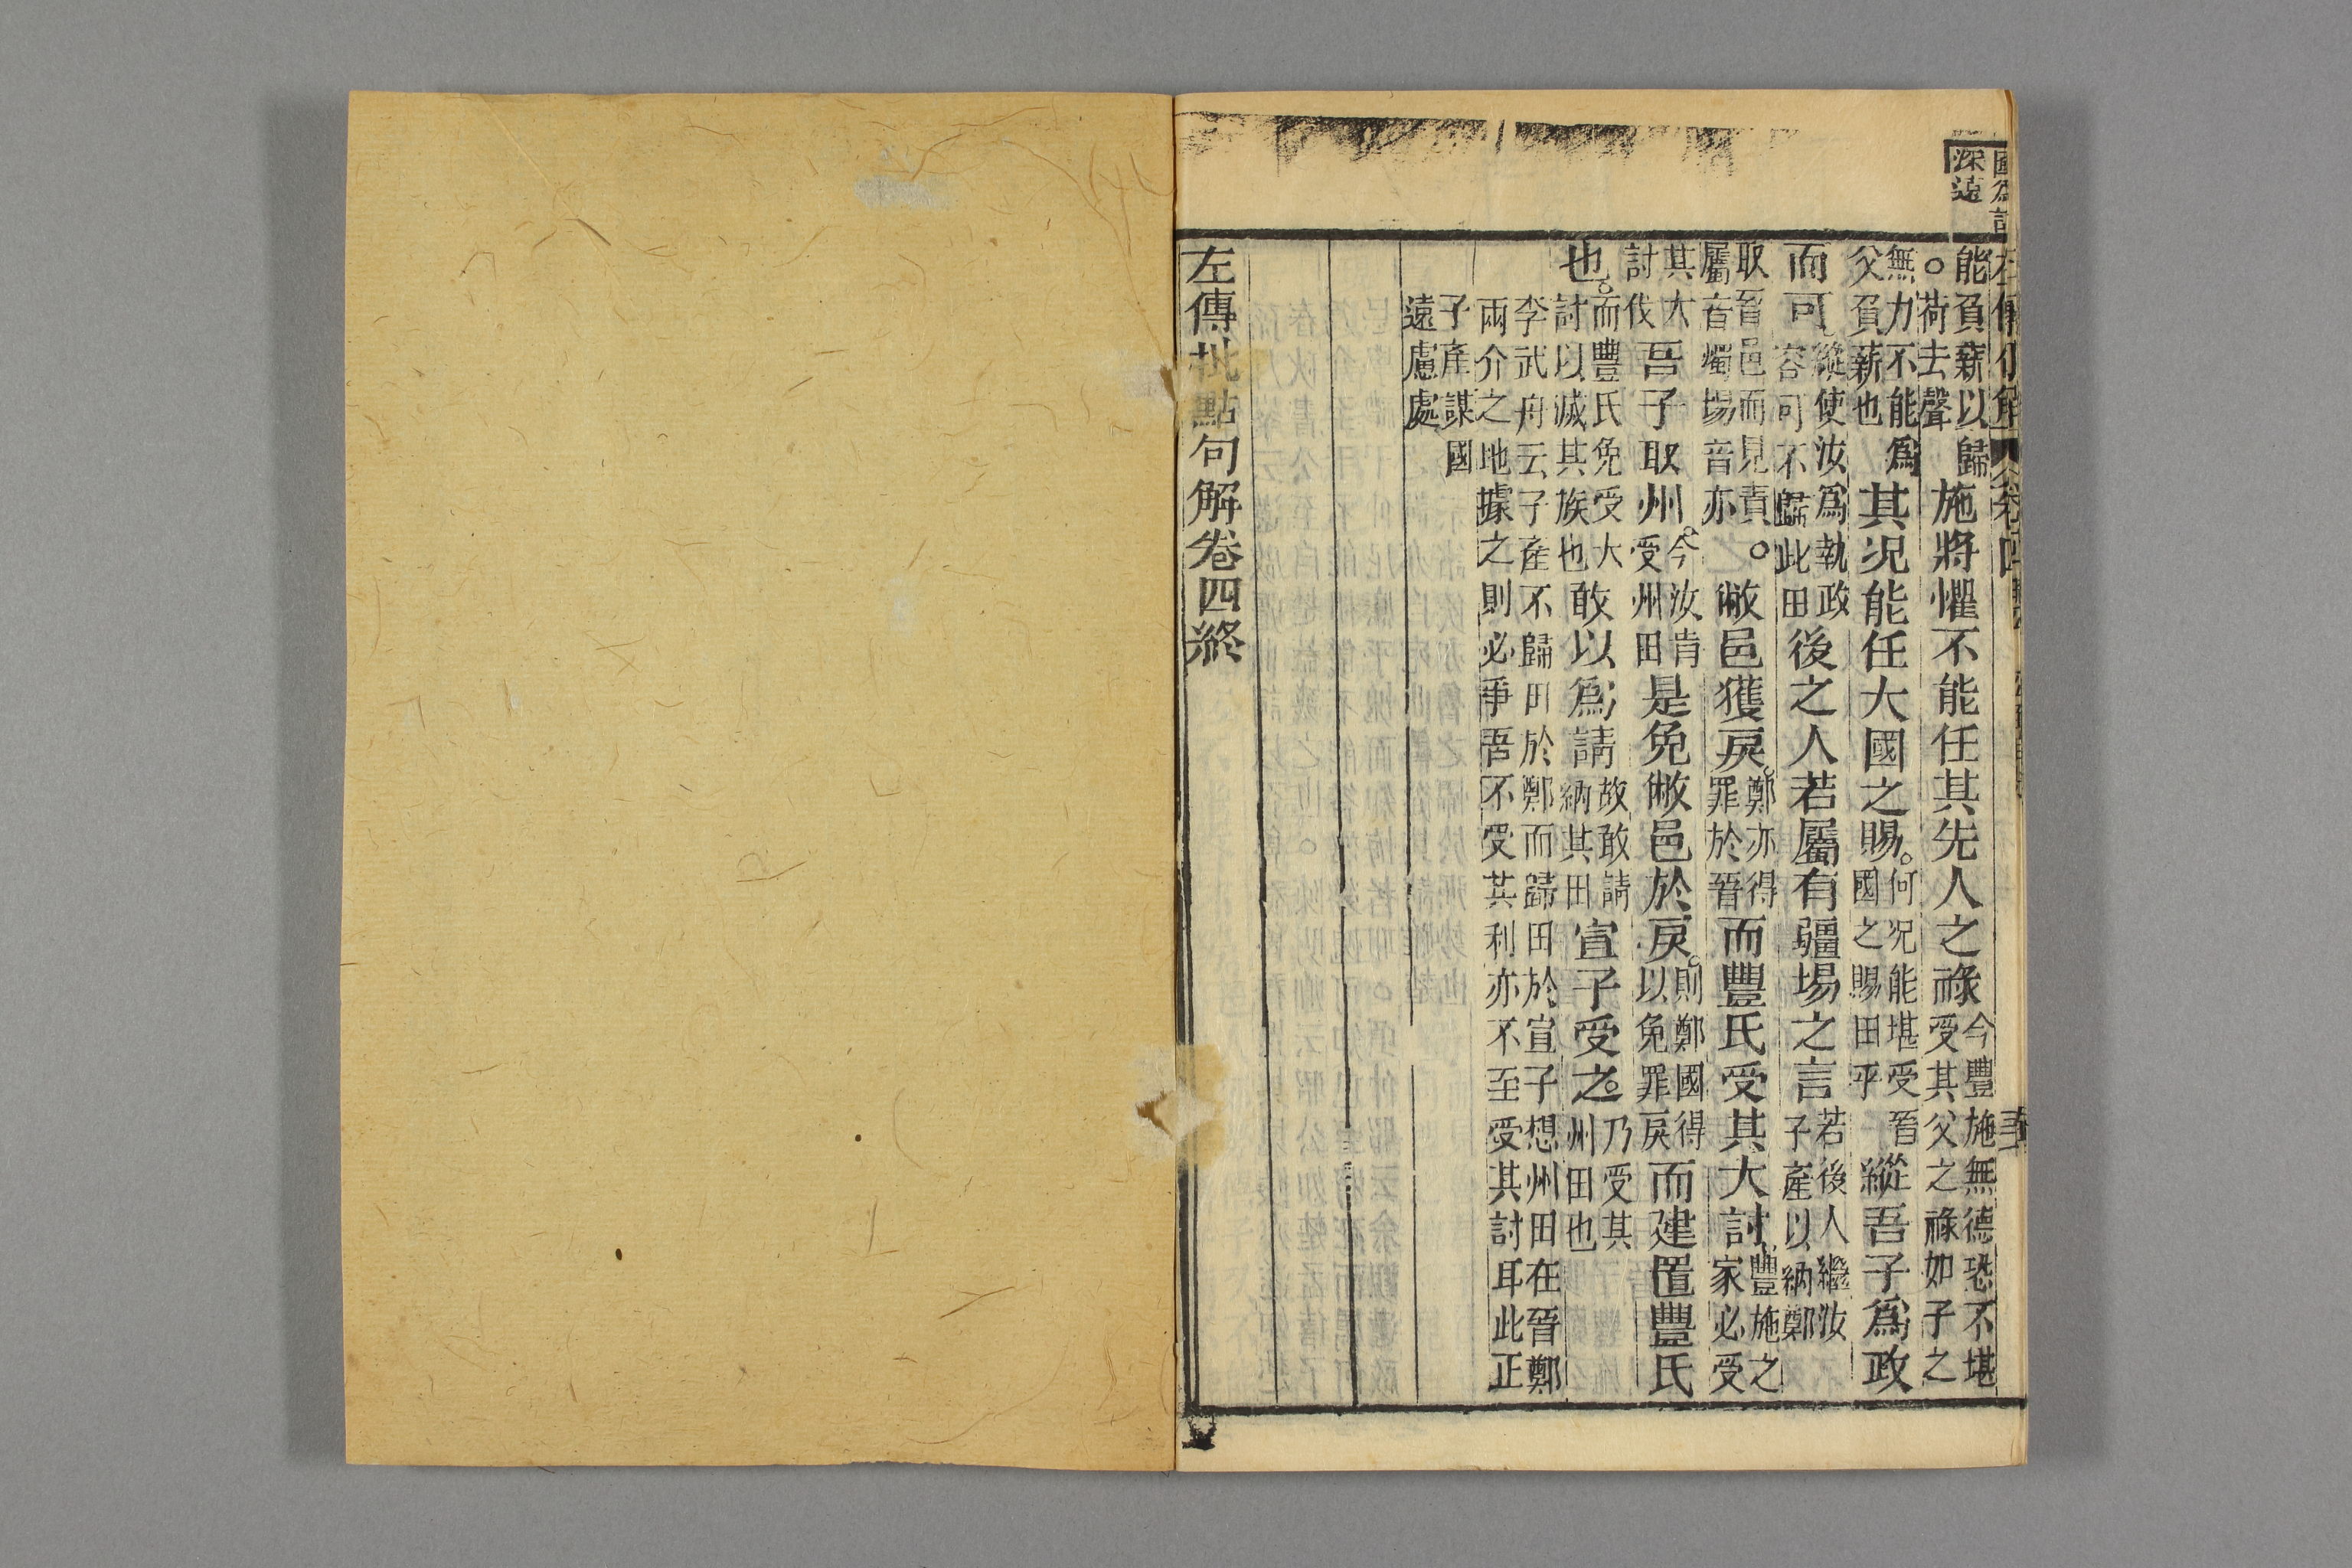 深遠
能負薪以歸
。荷去聲
施將懼不能任其先人之祿
今豐施無德恐不堪
受其父之祿如子之
無力不能爲
父負薪也
其況能任大國之賜。
何況能堪受晉
國之賜田乎
縱吾子爲政
而可
縱使汝爲執政
容可不歸此田
後之人若屬有疆場之言
若後人繼汝
子產以納鄭
取晉邑而見責。
屬音燭場音亦
敝邑獲戾。
鄭亦得
罪於晉
而豐氏受其大討
豐施之
家必受
其大
討伐
吾子取州。
今汝肯
受州田
是免敝邑於戾。
則鄭國得
以免罪戾
而建置豐氏
也。
而豐氏免受大
討以滅其族也
敢以爲請
故敢請
納其田
宣子受之。
乃受其
州田也
李武舟云子產不歸田於鄭而歸田於宣子想州田在晉鄭
兩介之地據之則必爭吾不受其利亦不至受其討耳此正
子產謀國
遠慮處
左傳批點句解卷四終